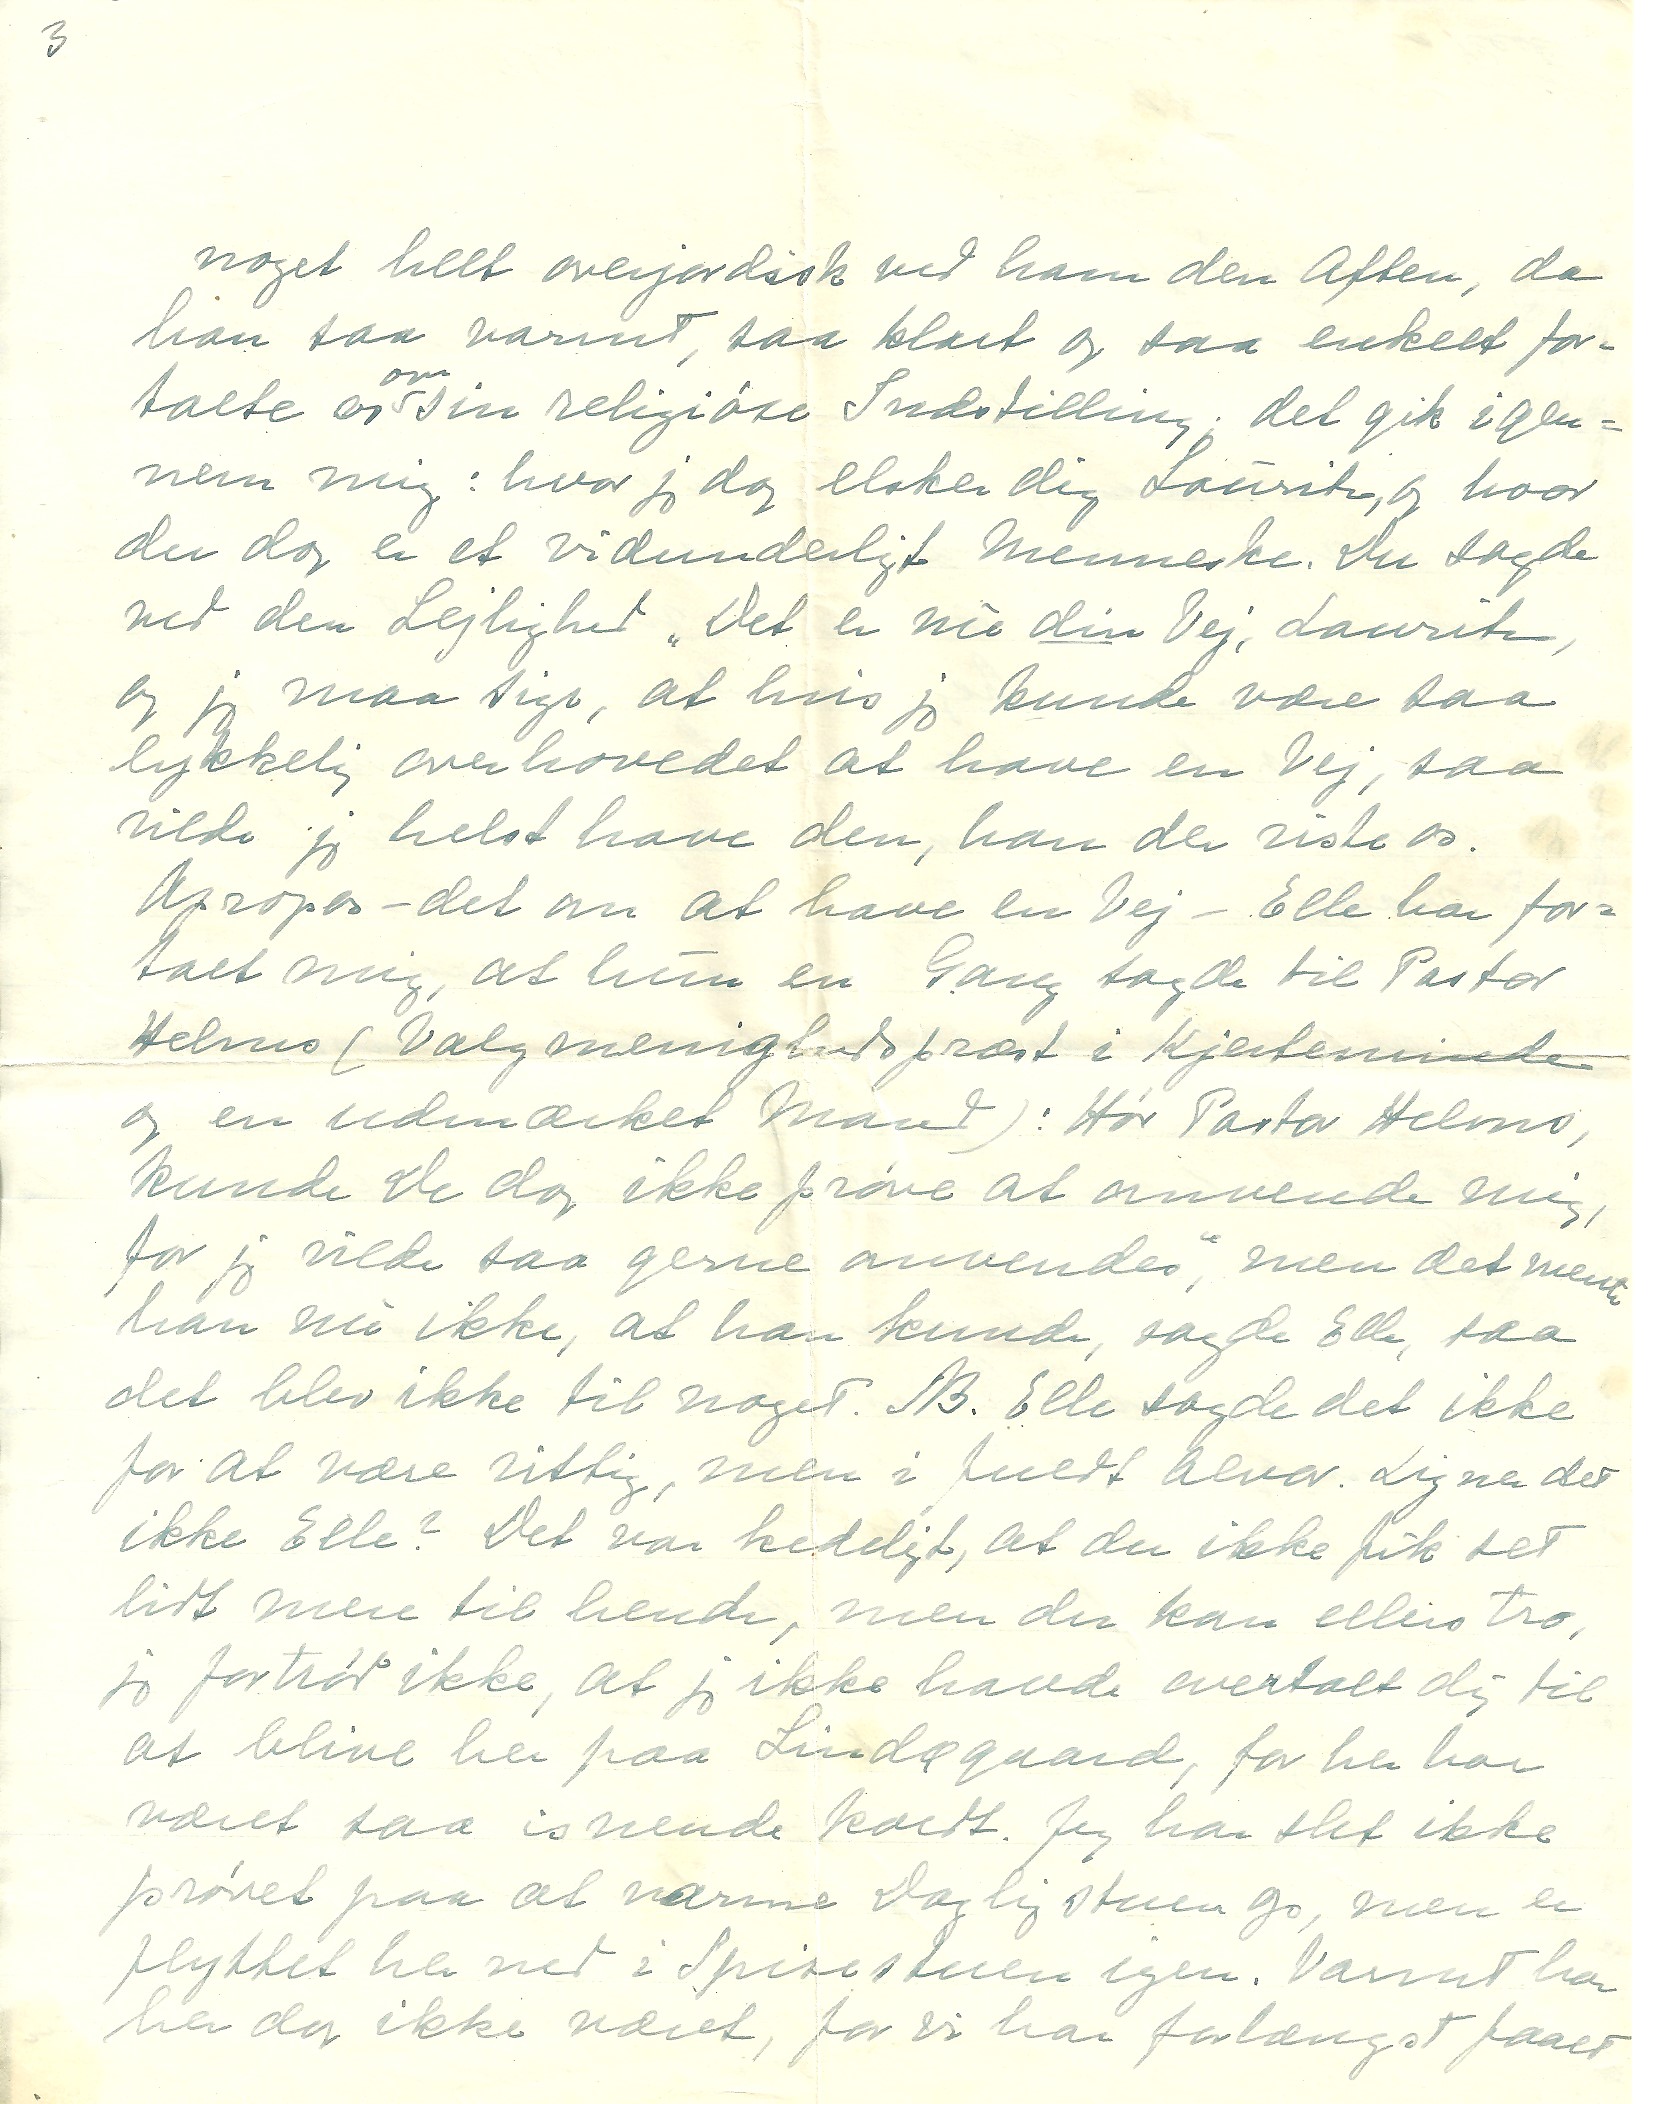 3
noget helt overjordisk ved ham den Aften, da
han saa varmt, saa klart og saa enkelt for-
talte os om sin religiöse Indstilling; det gik igen-
nem mig: hvor jeg dog elsker dig Lauritz, og hvor
du dog er et vidunderligt Menneske. Du sagde
ved den Lejlighed „Det er nu din Vej, Lauritz,
og jeg maa sige, at hvis jeg kunde være saa
lykkelig overhovedet at have en Vej, saa
vilde jeg helst have den, han der viste os.
Apropos – det om at have en Vej – Elle har for-
talt mig, at hun en Gang sagde til Pastor
Helms (Valgmenighedspræst i Kjerteminde
og en udmærket Mand): Hör Pastor Helms,
kunde De dog ikke pröve at omvende mig,
for jeg vilde saa gerne omvendes", men det mente
han nu ikke, at han kunde, sagde Elle, saa
det blev ikke til noget. NB. Elle sagde det ikke
for at være vittig, men i fuldt Alvor. Ligner det
ikke Elle? Det var kedeligt, at du ikke fik set
lidt mere til hende, men du kan ellers tro,
jeg fortröd ikke, at jeg ikke havde overtalt dig til
at blive her paa Lindøgaard, for her har
været saa isnende koldt. Jeg har slet ikke
prövet paa at varme Dagligstuen op, men er
flyttet her ned i Spisestuen igen. Varmt har
her dog ikke været, for vi har forlængst faaet